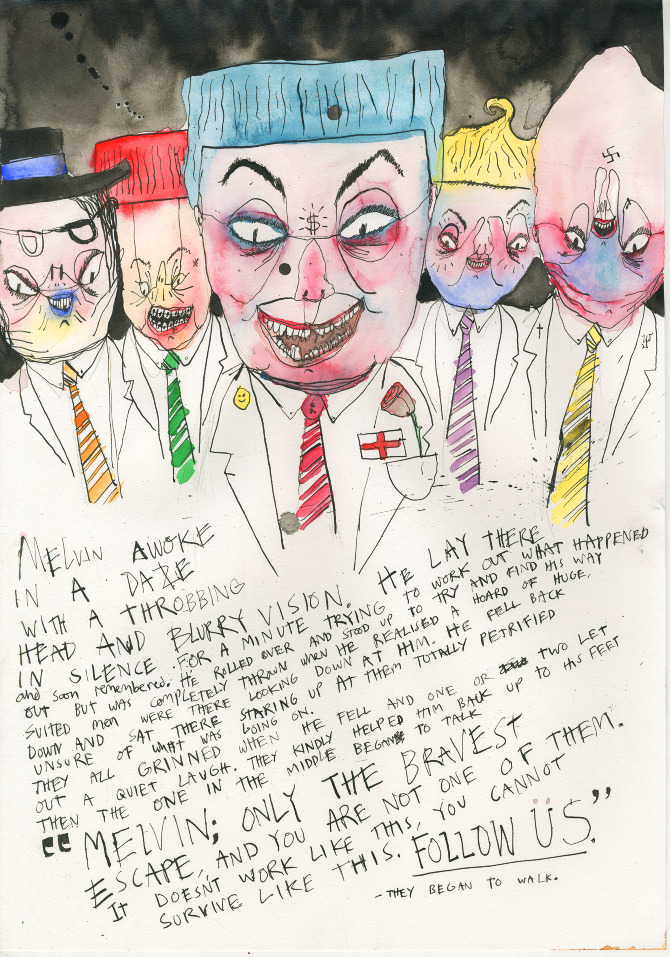 $
MELVIN AWOKE
IN A DAZE
WITH A THROBBING
HEAD AND BLURRY VISION. HE LAY THERE
IN SILENCE FOR A MINUTE TRYING TO WORK OUT WHAT HAPPENED
and soon remembered. HE ROLLED OVER AND STOOD UP TO TRY AND FIND HIS WAY
OUT BUT WAS COMPLETELY THROWN WHEN HE REALISED A HOARD OF HUGE,
SUITED MEN WERE THERE LOOKING DOWN AT HIM. HE FELL BACK
DOWN AND SAT THERE STARING UP AT THEM TOTALLY PETRIFIED
UNSURE OF WHAT WAS GOING ON.
THEY ALL GRINNED WHEN HE FELL AND ONE OR TWO LET
OUT A QUIET LAUGH. THEY KINDLY HELPED HIM BACK UP TO HIS FEET
THEN THE ONE IN THE MIDDLE BEGAN TO TALK
"MELVIN; ONLY THE BRAVEST
ESCAPE, AND YOU ARE NOT ONE OF THEM.
IT DOESNT WORK LIKE THIS, YOU CANNOT
SURVIVE LIKE THIS. FOLLOW ÜS."
- THEY BEGAN TO WALK.